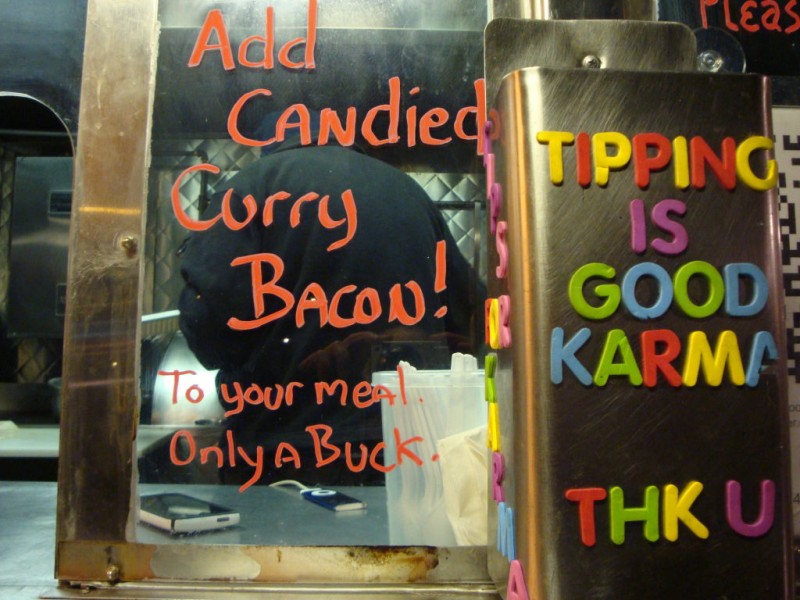 Add
CANdied
Curry
BACON!
To your meal.
Only A Buck.
TIPPING
IS
GOOD
KARMA
THK U
TIPS
KARMA
Pleas